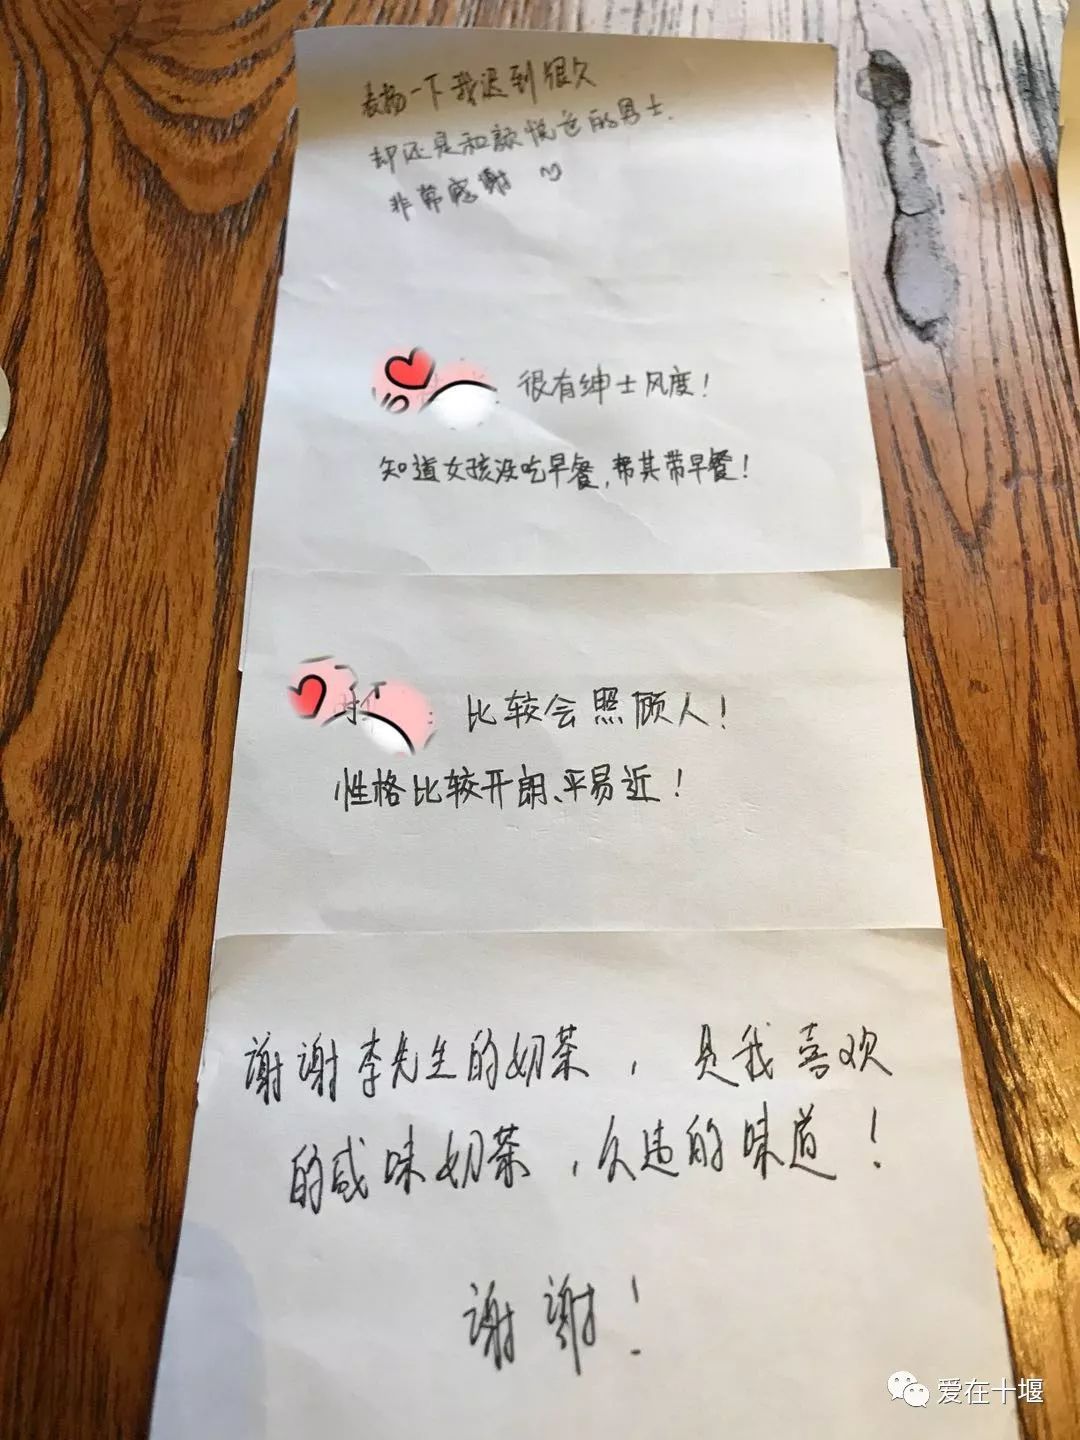 表扬一下我迟到很久
却还是和颜悦色的男士.
非常感谢
很有绅士风度！
知道女孩没吃早餐,帮其带早餐！
: 比较会照顾人！
性格比较开朗、平易近！
谢谢李先生的奶茶，是我喜欢
的咸味奶茶，久违的味道！
谢谢！
爱在十堰